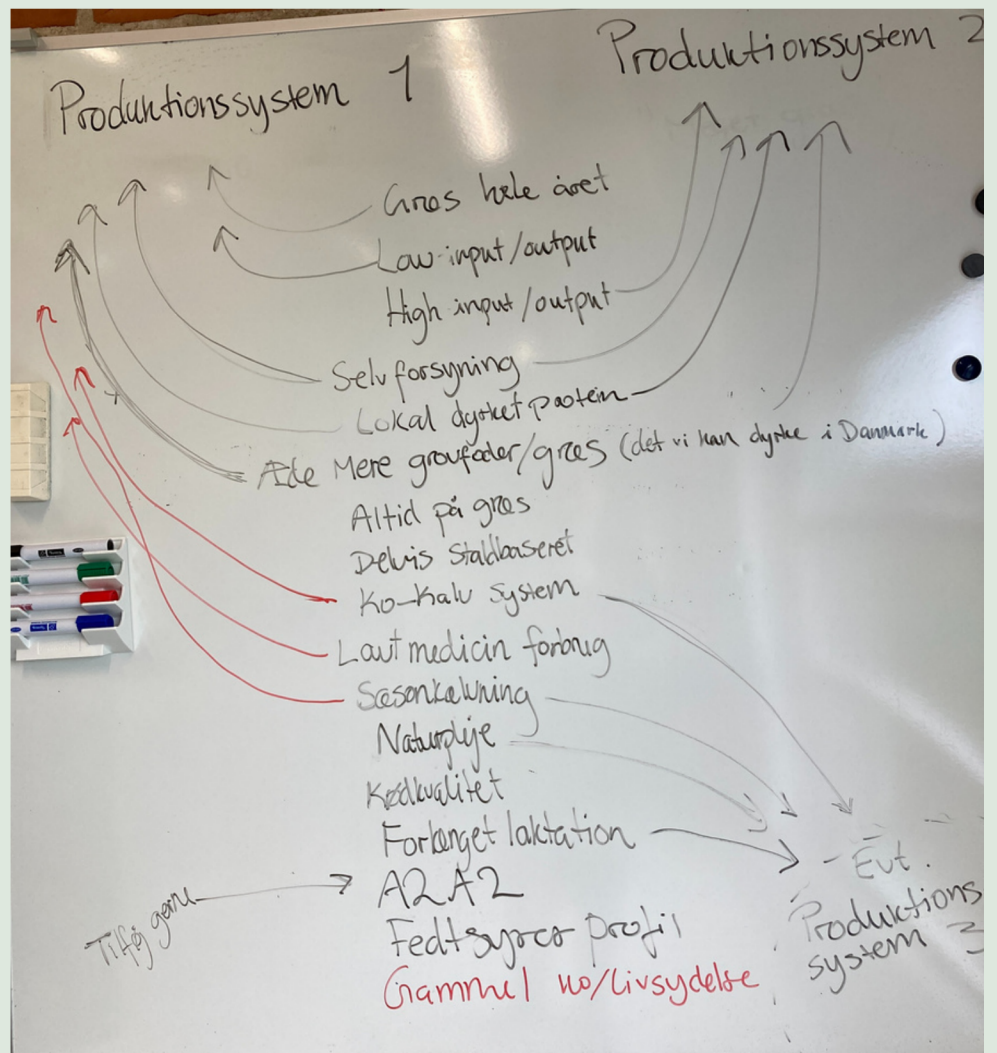 Produktionssystem 1
Produktionssystem 2
Græs hele året
Low input/output
High input/output
Selvforsyning
Lokal dyrket protein
Æde Mere groufoder/græs (det vi kan dyrke i Danmark)
Altid på græs
Delvis staldbaseret
Ko-Kalv system
Lavt medicin forbrug
Sæsonkælvning
Naturpleje
Kødkvalitet
Forlænget laktation
A2A2
Fedtsyrer profil
Gammel ko/Livsydelse
Tilføj gerne
- Evt.
Produktions
system 3